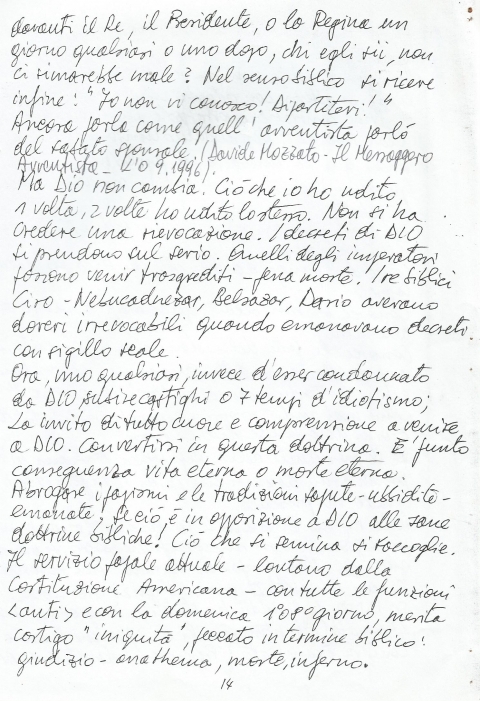 davanti il Re, il Presidente, o la Regina un
giorno qualsiasi o uno dopo, chi egli sii, non
ci rimarebbe male? Nel senso biblico si riceve
infine: "Io non vi conosco! Dipartitevi!"
Ancora parla come quell'avventista parlò
del sabato sponsale. (Davide Mozzato - Il Messaggero
Avventista - L'O 9.1996).
Ma DIO non cambia. Ciò che io ho udito
1 volta, 2 volte ho udito lo stesso. Non si ha
credere una rievocazione. I decreti di DIO
si prendono sul serio. Quelli degli imperatori
possono venir trasgrediti - pena morte. I re biblici
Ciro - Nebucadnezar, Belsazar, Dario avevano
doveri irrevocabili quando emanavano decreti
con sigillo reale.
Ora, uno qualsiasi, invece d'esser condannato
da DIO, subire castighi o 7 tempi d'idiotismo;
Lo invito di tutto cuore e comprensione a venire
a DIO. Convertirsi in questa dottrina. E' punto
conseguenza vita eterna o morte eterna.
Abrogare i papismi e le tradizioni sapute - ubbidite -
emanate! Se ciò è in opposizione a DIO alle sane
dottrine bibliche! Ciò che si semina si raccoglie.
Il servizio papale attuale - lontano dalla
Costituzione Americana - con tutte le funzioni
<anti> e con la domenica 1° o 8° giorno, merita
castigo "iniquità", peccato in termine biblico:
giudizio - anathema, morte, inferno.
14